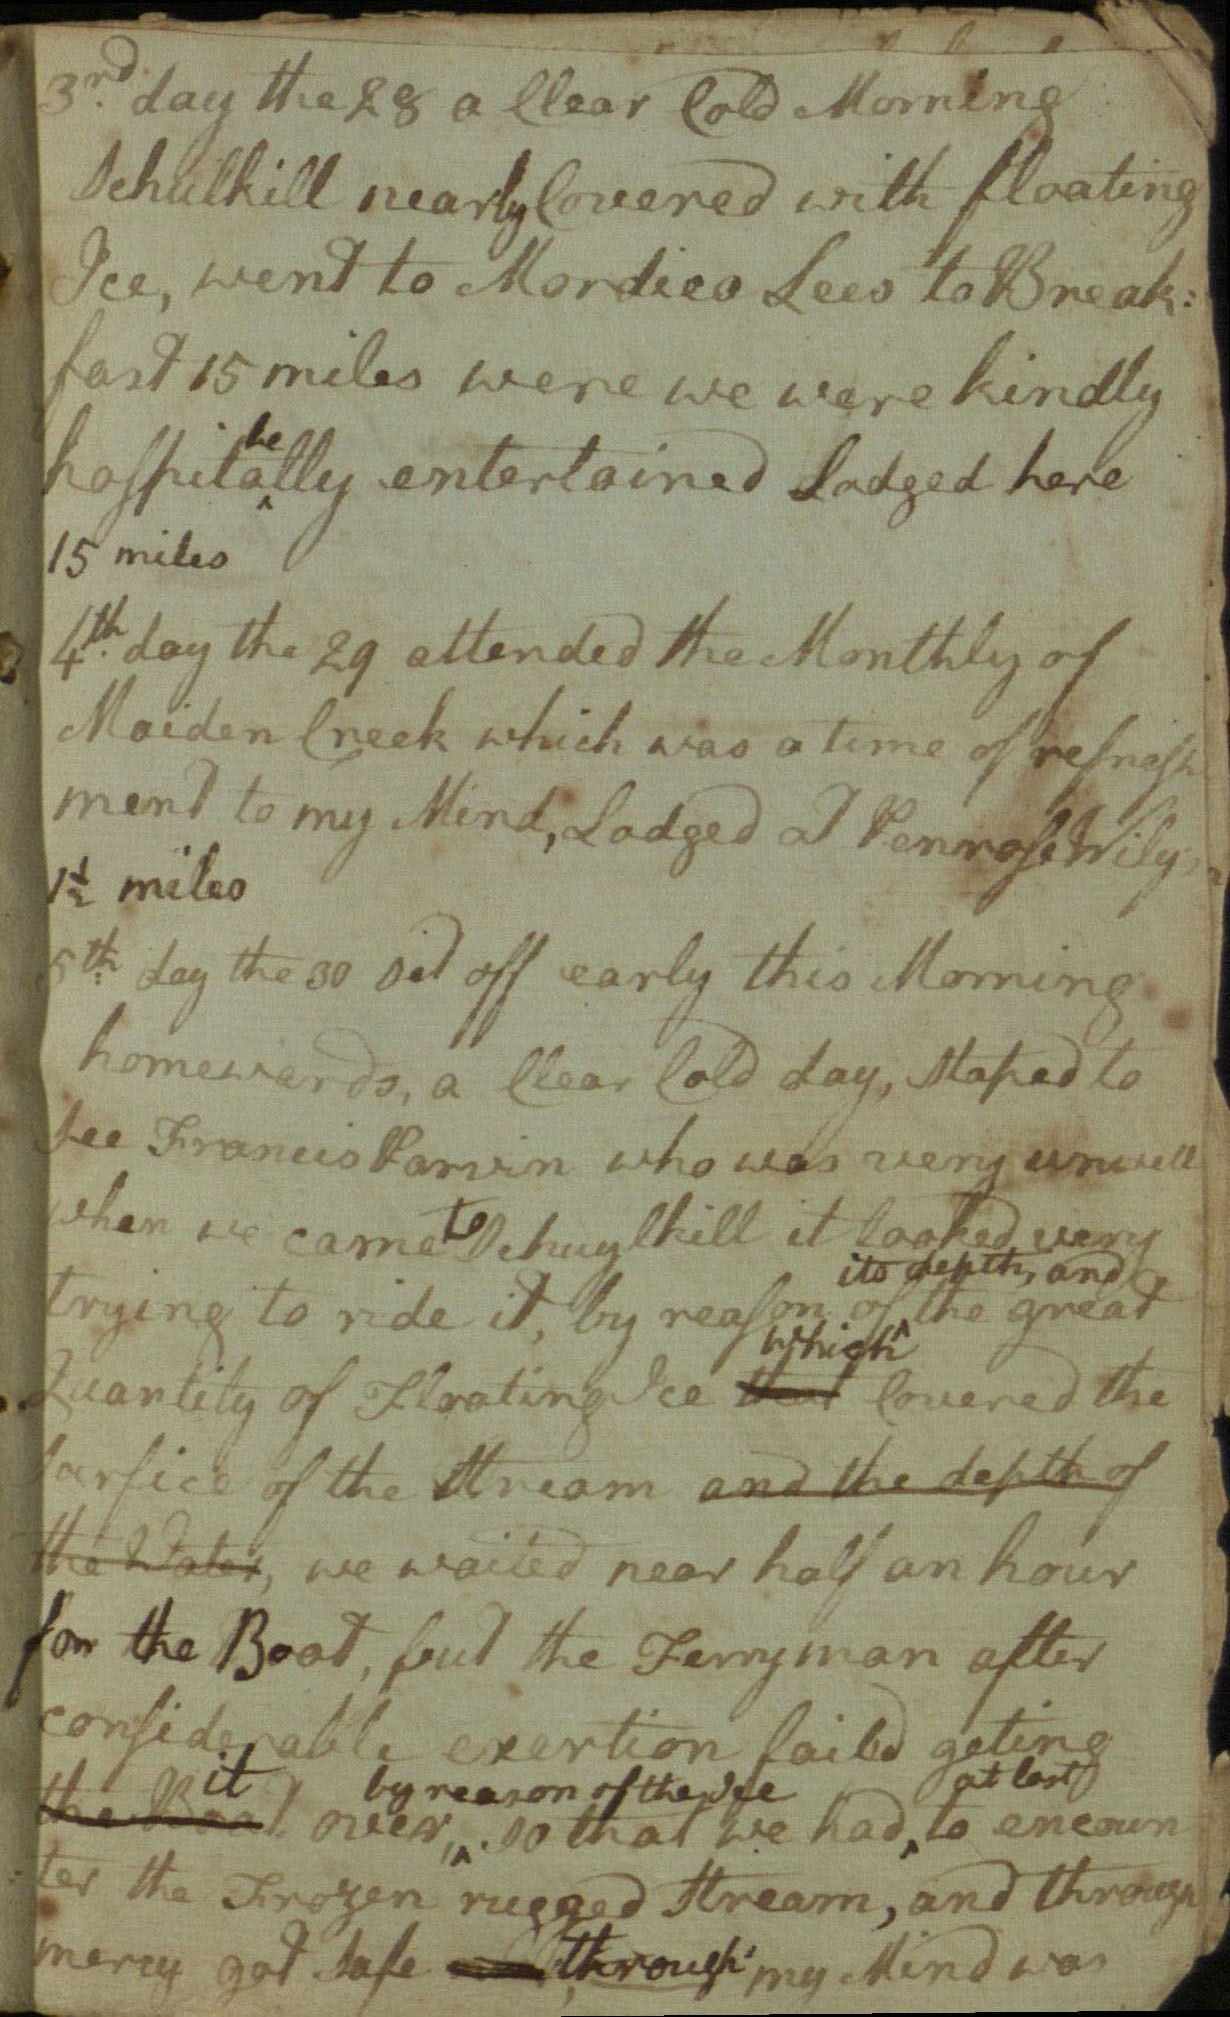 3rd. day the 28 a Clear Cold Morning
Schulkill nearly Covered with floating
Ice, went to Mordica Lees to Break:
fast 15 miles were we were kindly
he
hospitally entertained Lodged here
15 miles
4th. day the 29 attended the Monthly of
Maiden Creek which was a time of refresh
ment to my Mind, Lodged at Penrose Wilys
1½ miles
5th. day the 30 Set off early this Morning
homewards, a Clear Cold day, Stoped to
See Francis Parvin who was very unwell
when we came to Schuylkill it looked very
its depth, and
trying to ride it, by reason of the great
which
Quantity of Floating Ice that Covered the
Surfice of the Stream and the depth of
the Water, we waited near half an hour
for the Boat, but the Ferryman after
considerable exertion failed geting
it by reason of the Ice at last
the Boat over, so that we had to encoun
ter the Frozen rugged Stream, and through
mercy got Safe through my Mind was